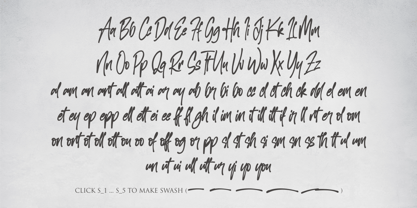 Aa Bb Cc Dd Ee Ff Gg Hh Ii Jj Kk Ll Mm
Nn Oo Pp Qq Rr Ss Tt Uu Vv Ww Xx Yy Zz
al am an ant all att ai ar ay ab br bi bo cc cl ct ch ck dd el em en
et ey ep epp ell ett ei ee ff fl gh il im in it ill itt if ir ll nt er ol om
on ont ot oll ott ou oo of off og or pp sl st sh si sm sn ss th tt ul um
un ut ui ull utt ur yi yo you
CLICK S_1 ... S_5 TO MAKE SWASH ( )